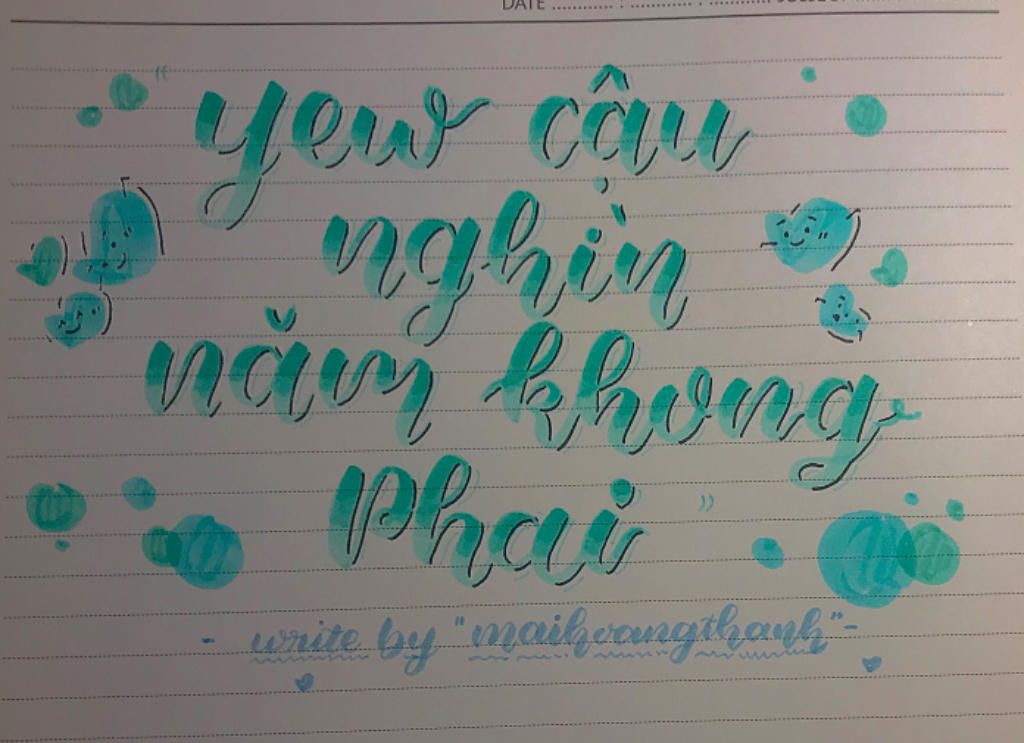 DATE
“ yew câu
nghìn
năm khong
phai ”
- write by "maihoangthanh" -